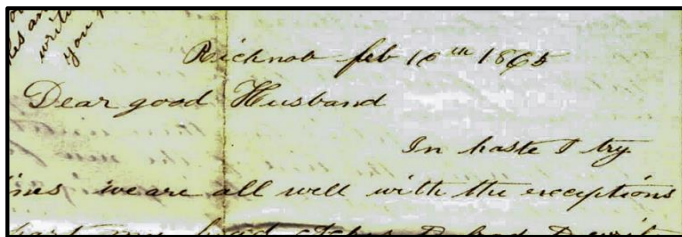 writ
you
Richnob feb 16th 1865
Dear good Husband
In haste I try
ines we are all well with the exceptions
my head